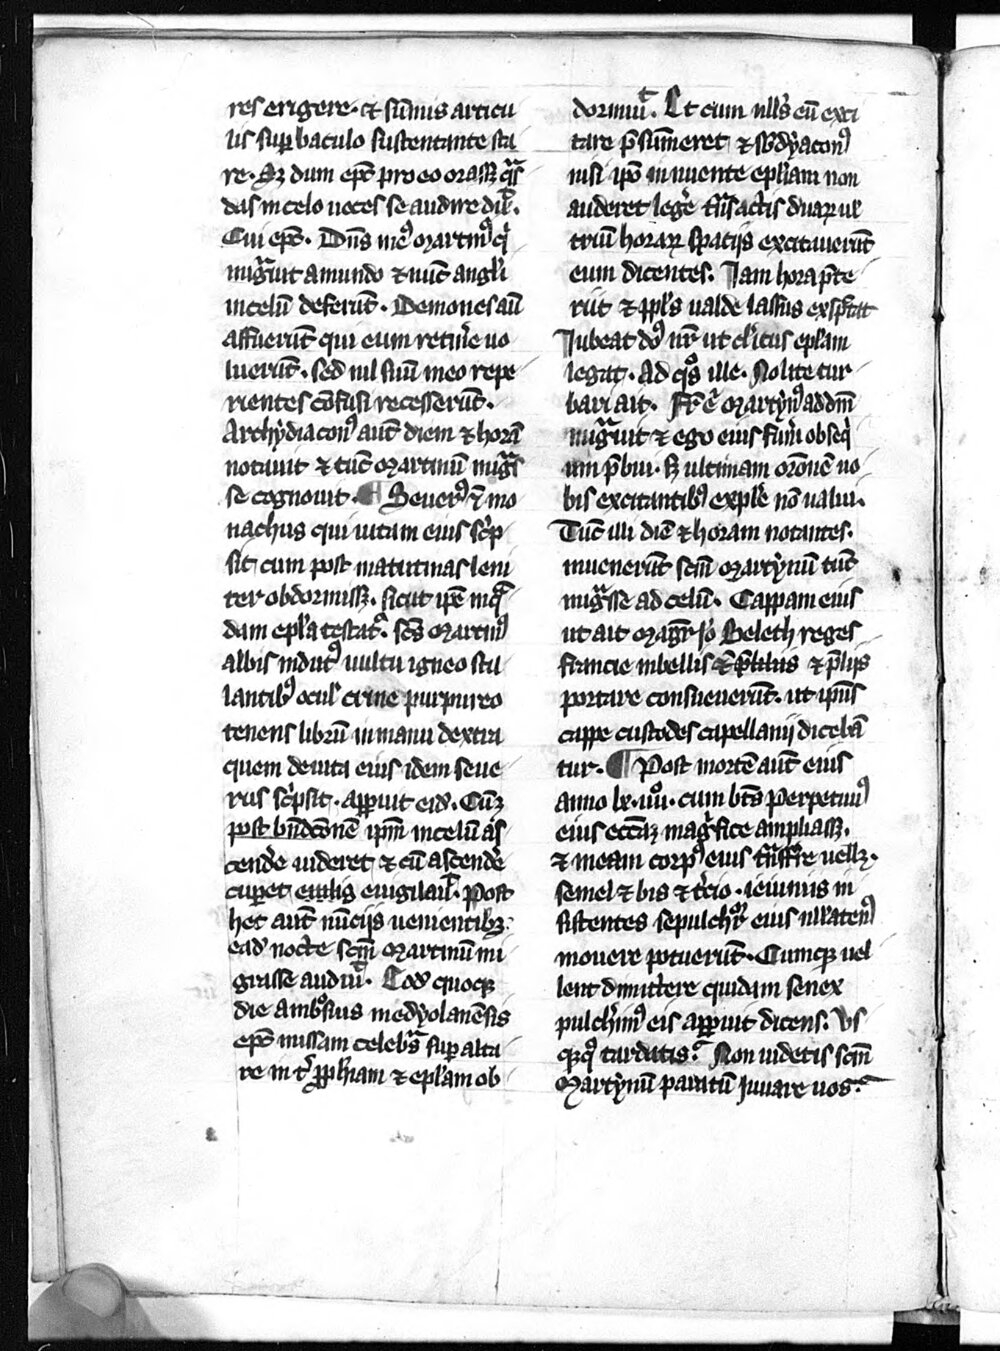 res erigere. et sūmis articu
lis suꝑ baculo sustentante sta
re. Sꝫ dum ep̄c pro eo orasꝫ q̄s
das in celo uoces se audire dix̄.
Cui ep̄c. Dn̄s meꝰ martinꝰ q̄
migᷓuit a mundo ⁊ nūc angl̓i
in celū deferūt. Demones aū
affuerūt qui eum retin̓e uo
luerūt. sed nil suū in eo repe
rientes cōfusi recesserūt.
Archẏdiaconꝰ aūt diem ⁊ horā
notauit ⁊ tūc martinū migᷓs
se cognouit. ¶ Seuerꝰ ē mo
nachus qui uitam eius sc̓p
sit cum post matutinas leni
ter obdormissꝫ. sicut ip̄e in q̄
dam epl̓a testatᷣ. sc̄s martinꝰ
albis indutꝰ uultu igneo stel
lantibꝰ ocul̓ crine purpureo
tenens librū in manu dextra
quem de uita eius idem seue
rus sc̓psit. apꝑuit eid̓. Cūqꝫ
post bn̄dc̄onē ip̄m in celū as
cende̓ uideret ⁊ cū ascende̓
cuꝑet euigilauit. Post
hec aūt nūcijs uenientibꝫ
ead̓ nocte sc̄m martinū mi
grasse audiuit. Eod̓ quoqꝫ
die ambꝰsius medẏolanēsis
ep̄c missam celebᷓns suꝑ alta
re int̓ ꝓph̄iam ⁊ epl̓am ob
dormiuit. Et cum nll̓s eū exci
tare p̄sūmeret ⁊ sb̓dẏaconꝰ
nisi ip̄o innuente epl̓am non
auderet lege̓ tn̄sactis duaꝝ uł
triū horaꝝ spatijs excitauerūt
eum dicentes. Jam hora p̄te
rijt ⁊ ppl̓s ualde lassus exspectat
Jubeat dn̄s nr̄ ut cl̓icus epl̓am
legat. Ad q̊s ille. Nolite tur
bari ait. Fr̄ m̄ martẏnꝰ ad dn̄m
migᷓuit ⁊ ego eius fun̓i obseq̓
um p̄bui. sꝫ ultimam or̄onē uo
bis excitantibꝰ exple̓ nō ualui.
Tūc illi diē ⁊ horam notantes.
inuenerūt sc̄m martẏnū tūc
migᷓsse ad celū. Cappam eius
ut ait magr̄ Jo Beleth reges
francie in bellis ⁊ p̄liis
portare consueuerūt. ut ipīus
cappe custodes capellanij diceba̅
tur. ¶ Post mortē aūt eius
anno lx. iiiiᵒ. cum bt̄s Perpetuuꝰ
eius ecc̄iaꝫ magᷓfice ampliassꝫ.
⁊ in eam corpꝰ eius tn̄sfr̄re uellꝫ.
semel ⁊ bis ⁊ t̓cio. ieiuniis in
sistentes sepulchrum eius nullatenꝰ
mouere potuerūt. Cumqꝫ uel
lent dimitte̓re quidam senex
pulch̓rimꝰ eis apꝑuit dicens. Vs
qꝫquo tardatis. Non uidetis sc̄m
Martẏnū paratū Juuare uos.